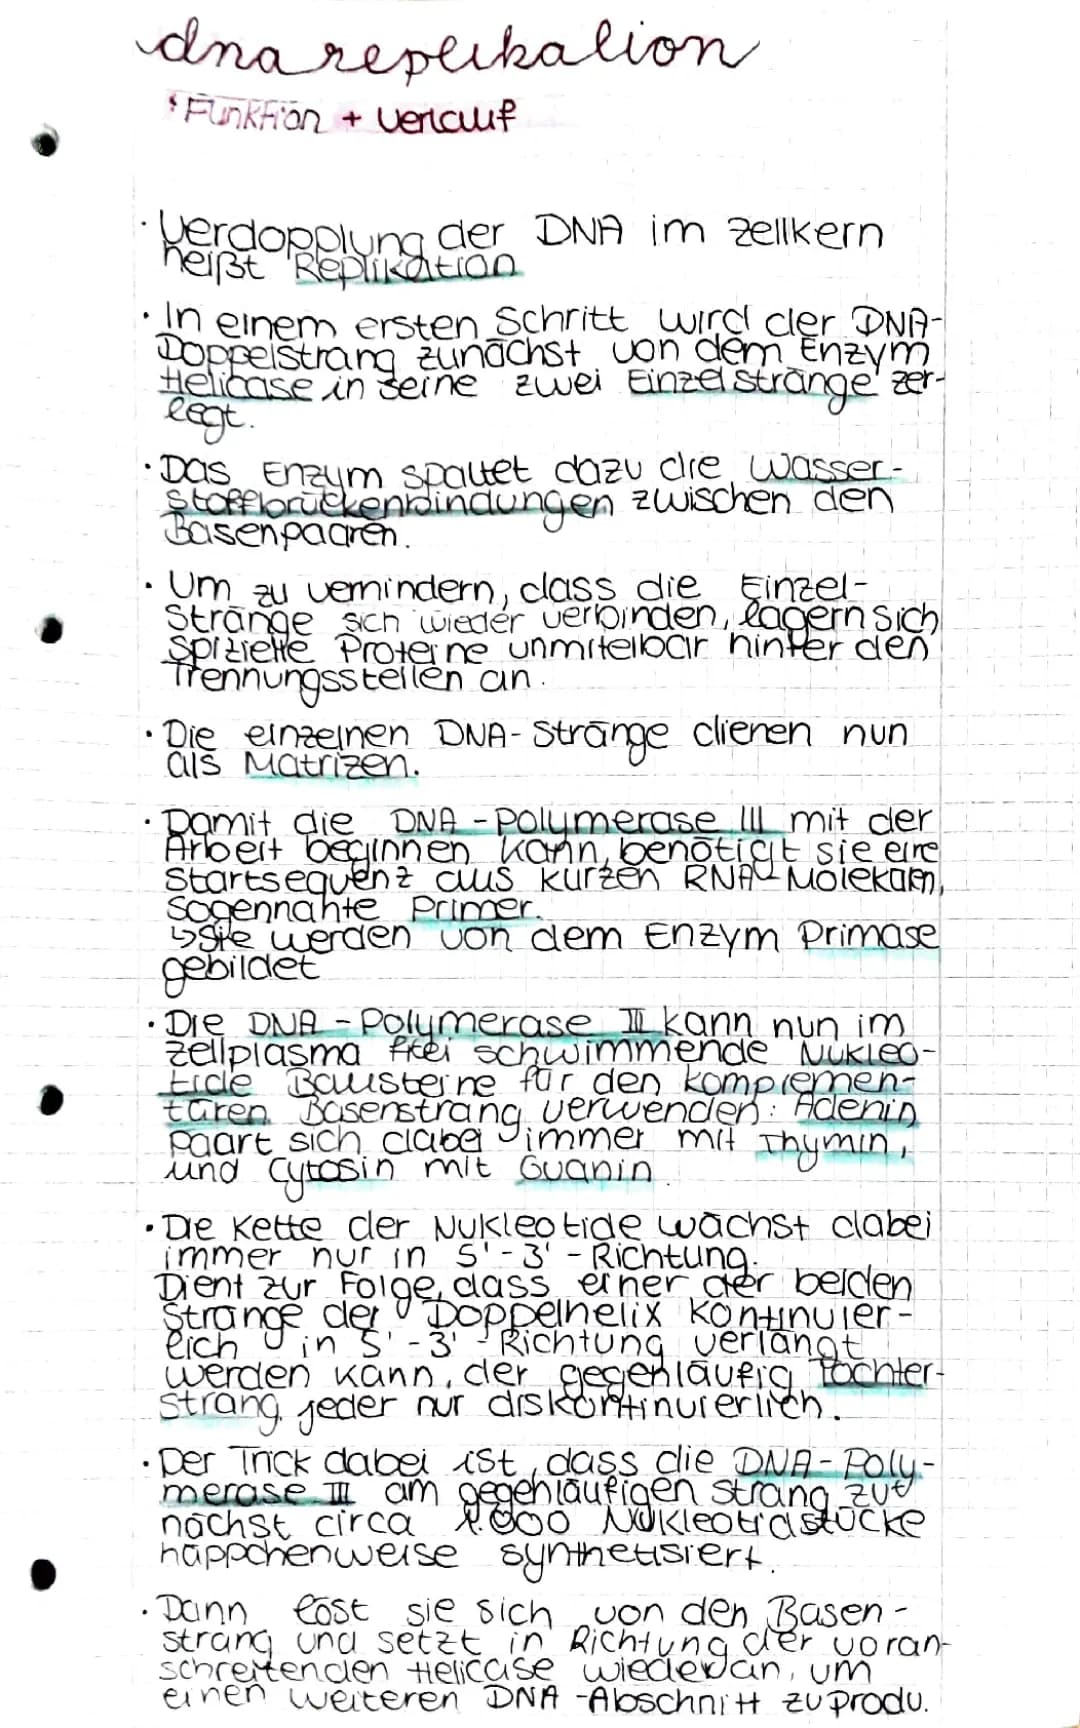 dna replikation
Funktion + Verlauf
· Verdopplung der DNA im Zellkern
heißt Replikation
· In einem ersten Schritt wird der DNA-
Doppelstrang zunächst von dem Enzym
Helicase in seine zwei Einzelstränge zer-
legt.
· Das Enzym spaltet dazu die Wasser-
stoffbrückenbindungen zwischen den
Basenpaaren.
· Um zu verhindern, dass die Einzel-
Stränge sich wieder verbinden, lagern sich
spizielle Proteine unmitelbar hinter den
Trennungsstellen an.
· Die einzelnen DNA-Stränge dienen nun
als Matrizen.
· Damit die DNA-Polymerase III mit der
Arbeit beginnen kann, benötigt sie eine
Startsequenz aus kurzen RNA-Molekülen,
sogennante Primer.
↳ Sie werden von dem Enzym Primase
gebildet
· Die DNA-Polymerase III kann nun im
Zellplasma frei schwimmende Nukleo-
tide Bausteine für den komplemen-
tären Basenstrang verwenden: Adenin
Paart sich dabei immer mit Thymin,
und Cytosin mit Guanin
· Die Kette der Nukleotide wächst dabei
immer nur in 5'-3'-Richtung.
Dient zur Folge, dass einer der beiden
Stränge der Doppelhelix kontinuier-
lich in 5'-3'-Richtung verlängt
werden kann, der gegenläufig Tochter-
strang jeder nur diskontinuierlich.
· Der Trick dabei ist, dass die DNA-Poly-
merase III am gegenläufigen Strang zu
nächst circa 1.000 Nukleotidstücke
häppchenweise synthetisiert.
· Dann löst sie sich von den Basen-
strang und setzt in Richtung der voran-
schreitenden Helicase wieder an, um
einen weiteren DNA-Abschnitt zu produ.